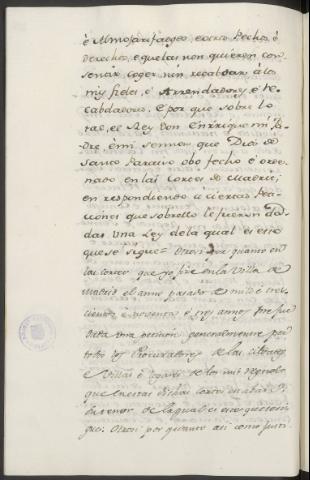 è Almojarifazgos, è otros Pechos, è
derechos, è que las non quieren con
sentir coger, nin recabdar à los
mis fieles, è Arrendadores, è Re-
cabdadores. E por que sobre lo
tal, el Rey Don Enrrique mi Pa
dre è mi señor que Dios dè
Santo Paraiso obo fecho è orde
nado en las Cortes de Madrid,
en respondiendo à ciertas Peti
ciones que sobrello le fueron da
das una Ley de la qual es esto
que se sigue = Otrosi por quanto en
las cortes que yo fize en la Villa de
Madrid el anno pasado de mil è tres
cientos, è noventa è tres annos fue
dada una peticion generalmente por
todos los Procuradores de las cibdades
è Villas è logares de los mis Regnos
que en estas dichas cortes
tenor de la qual es esto que se si
gue. Otrosi por quanto asi como justi